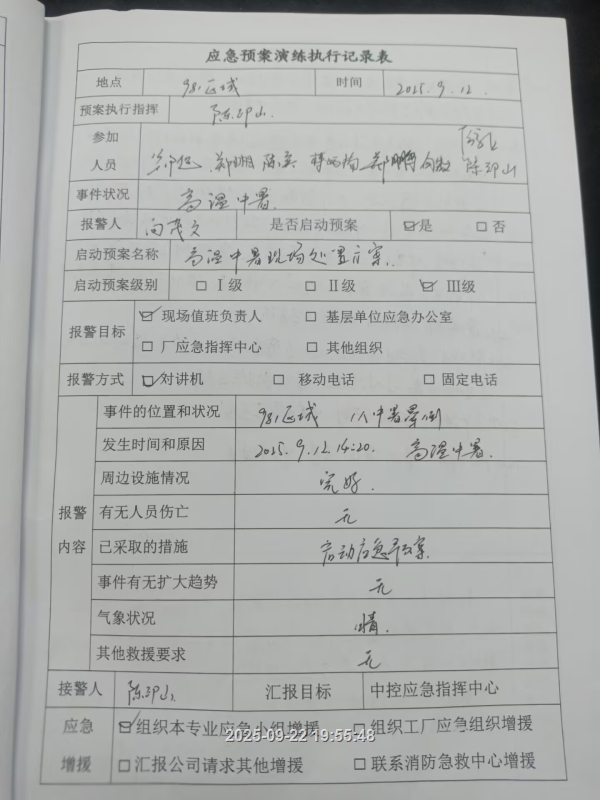 应急预案演练执行记录表
地点 981区域 时间 2025.9.12.
预案执行指挥 陈邵山.
参加人员 郑湘 陈兵 郑鹏 陈邵山
事件状况 高温中暑.
报警人 向茂文 是否启动预案 ☑是 □否
启动预案名称 高温中暑现场处置方案.
启动预案级别 □Ⅰ级 □Ⅱ级 ☑Ⅲ级
报警目标 ☑现场值班负责人 □基层单位应急办公室
□厂应急指挥中心 □其他组织
报警方式 ☑对讲机 □移动电话 □固定电话
报警内容
事件的位置和状况 981区域 1人中暑晕倒
发生时间和原因 2025.9.12.14:20. 高温中暑.
周边设施情况 完好.
有无人员伤亡 无
已采取的措施 启动应急预案.
事件有无扩大趋势 无
气象状况 晴.
其他救援要求 无
接警人 陈邵山 汇报目标 中控应急指挥中心
应急增援 ☑组织本专业应急小组增援 □组织工厂应急组织增援
□汇报公司请求其他增援 □联系消防急救中心增援
2025-09-22 19:55:48